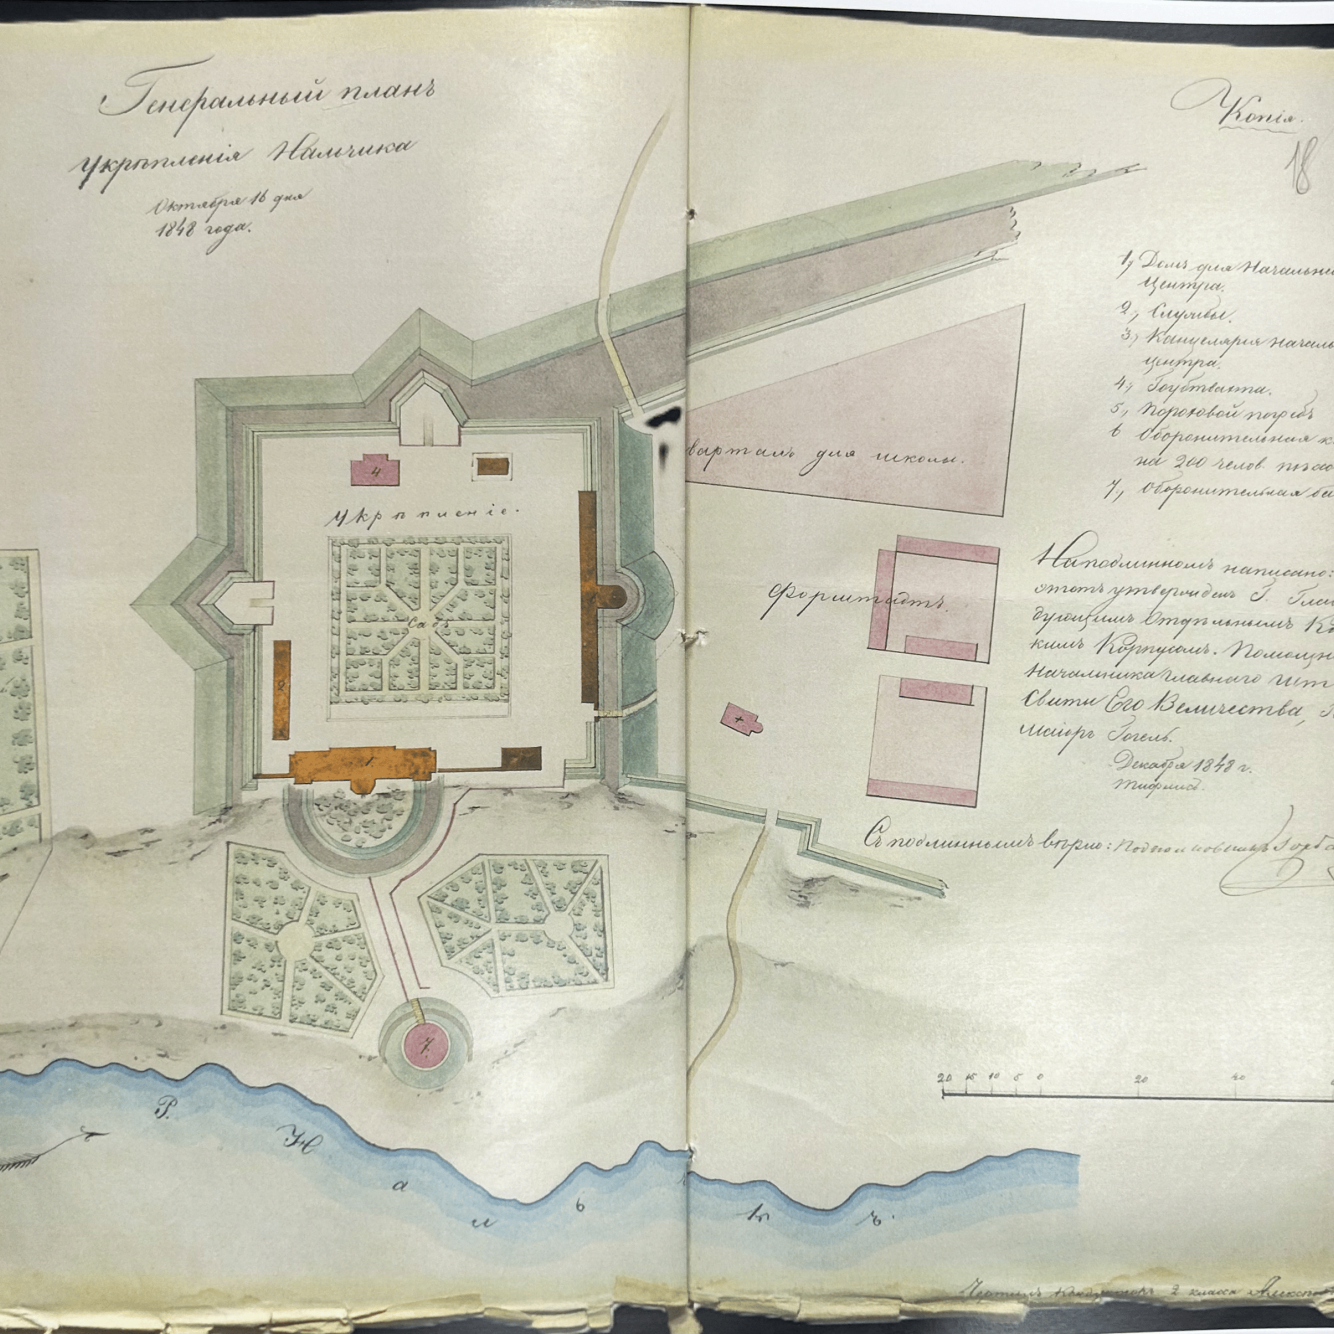 Генеральный планъ
Укрѣпленія Нальчика
Октября 16 дня
1848 года.
Копія.
18
1, Домъ для Начальни
Центра.
2, Службы.
3, Канцелярія Началь
центра.
4, Гоубтвахта.
5, Пороховой погребъ
6 Оборонительная к
на 200 челов
7, Оборонительная ба
4
Укрѣпленіе.
Садъ
2
1.
7.
варталъ для школы.
Форштатъ.
На подлинномъ написано:
утвержденъ Г. Глав
дующимъ Отдѣльнымъ К
кимъ Корпусомъ. Помощн
Начальника главнаго шт
Свиты Его Величества,
Маіоръ Гогель.
Декабря 1848 г.
Тифлисъ.
Съ подлиннымъ вѣрно: Подполковникъ
20 15 10 5 0 20 40
Р. Н а л ь ч и къ.
Чертилъ Кондукторъ 2 класса